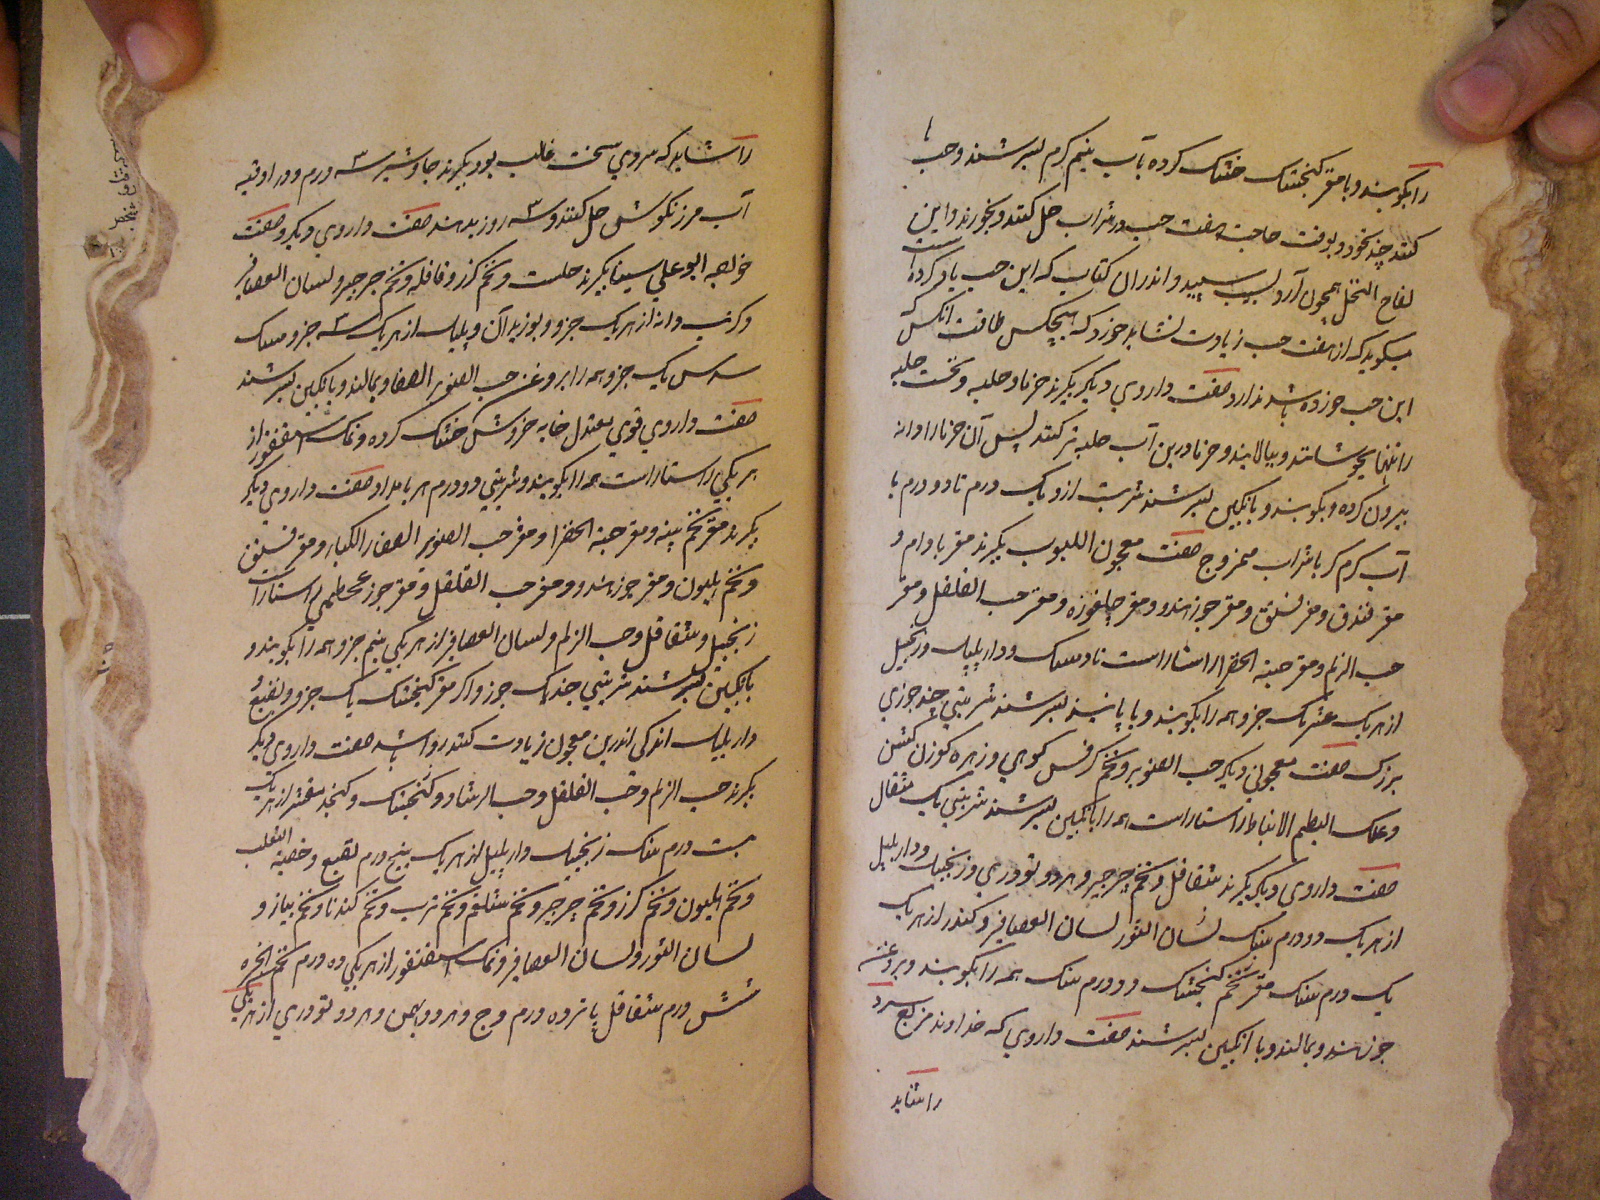 را بکوبند و با مغز کنجشک خشک کرده بآب نیم کرم بسرشند و حب با
کنند چند نخود و بوقت حاجت هفت حب در شراب حل کنند و بخورند و این
لقاح النخل همچون آرد لیست سپید و اندران کتاب که این حب یاد کرده است
میکوید که از هفت حب زیادت نشاید خورد که هیچکس طاقت انکس
این حب خورده باشد ندارد صفت داروی دیکر بکیرند خرما و حلبه و نخست حلبه
را تنها بجوشانند و بپالایند و خرما درین آب حلبه تر کنند پس آن خرما را دانه
بیرون کرده و بکوبند و بانکبین بسرشند شربت ازو یک درم تا دو درم با
آب کرم کر با شراب ممزوج صفت معجون اللبوب بکیرند مغز بادام و
مغز فندق و مغز فستق و مغز جوز هندو و مغز چلغوزه و مغز حب الفلفل و مغز
حب الزلم و مغز حبة الخضرا راستا راست نار مسک و دار پلپل و زنجبیل
از هر یک عشر یک جزو همه را بکوبند و با پانید بسرشند شربتی چند جوزی
بزرک صفت معجونی دیکر حب الصنوبر و تخم کرفس کوهی و زهره کوزن کشن
و علک البطم الانباط راستا راست همه را بانکبین بسرشند شربتی یک مثقال
صفت داروی دیکر بکیرند شقاقل و تخم جرجیر و هر دو تودری و زنجبیل و دار پلپل
از هر یک دو درم سنک لسان الثور لسان العصافیر و کندر از هر یک
یک درم سنک مغز تخم کنجشک دو درم سنک همه را بکوبند و بروغن
جوز هندو بمالند و با انکبین بسرشند صفت داروی که خداوند مزاج سرد
را شاید
را شاید که سردی سخت غالب بود بکیرند جاوشیر سه ۳ درم و در اوقیه
آب مرزنکوش حل کنند و سه ۳ روز بدهند صفت داروی دیکر و صفت
خواجه ابو علی سینا بکیرند حلتیت و تخم کزر و قاقله و تخم جرجیر و لسان العصافیر
و کرنب دانه از هر یک جزو و بوزیدان و پلپل از هر یک سه ۳ جزو مسک
سدس یک جزو همه را بروغن حب الصنوبر الصغار بمالند و بانکبین بسرشند
صفت داروی قوی معتدل خایه خروس خشک کرده و نمک سقنقور از
هر یکی راستا راست همه را بکوبند و شربتی دو درم هر بامداد صفت داروی دیکر
بکیرند مغز تخم پنبه و مغز حبة الخضرا و مغز حب الصنوبر الصغار الکبار و مغز فستق
و تخم هلیون و مغز جوز هندو و مغز حب القلقل و مغز جوز راستا راست
زنجبیل و شقاقل و حب الزلم و لسان العصافیر از هر یکی نیم جزو همه را بکوبند و
بانکبین بسرشند شربتی چند یک جوز و اکر مغز کنجشک یک جزو و نقیع
دار پلپل اندکی اندرین معجون زیادت کنند روا باشد صفت داروی دیکر
بکیرند حب الزلم و حب الفلفل و حب الرشاد و کنجشک و کنجد مقشر از هر یک
بیست درم سنک زنجبیل دار پلپل از هر یک پنج درم نقیع و خصیه الثعلب
و تخم هلیون و تخم کزر و تخم جرجیر و تخم شلغم و تخم ترب و تخم کندنا و تخم پیاز و
لسان الثور و لسان العصافیر و نمک سقنقور از هر یکی ده درم تخم انجره
شش درم شقاقل پانزده درم وج و هر دو بهمن و هر دو تودری از هر یکی